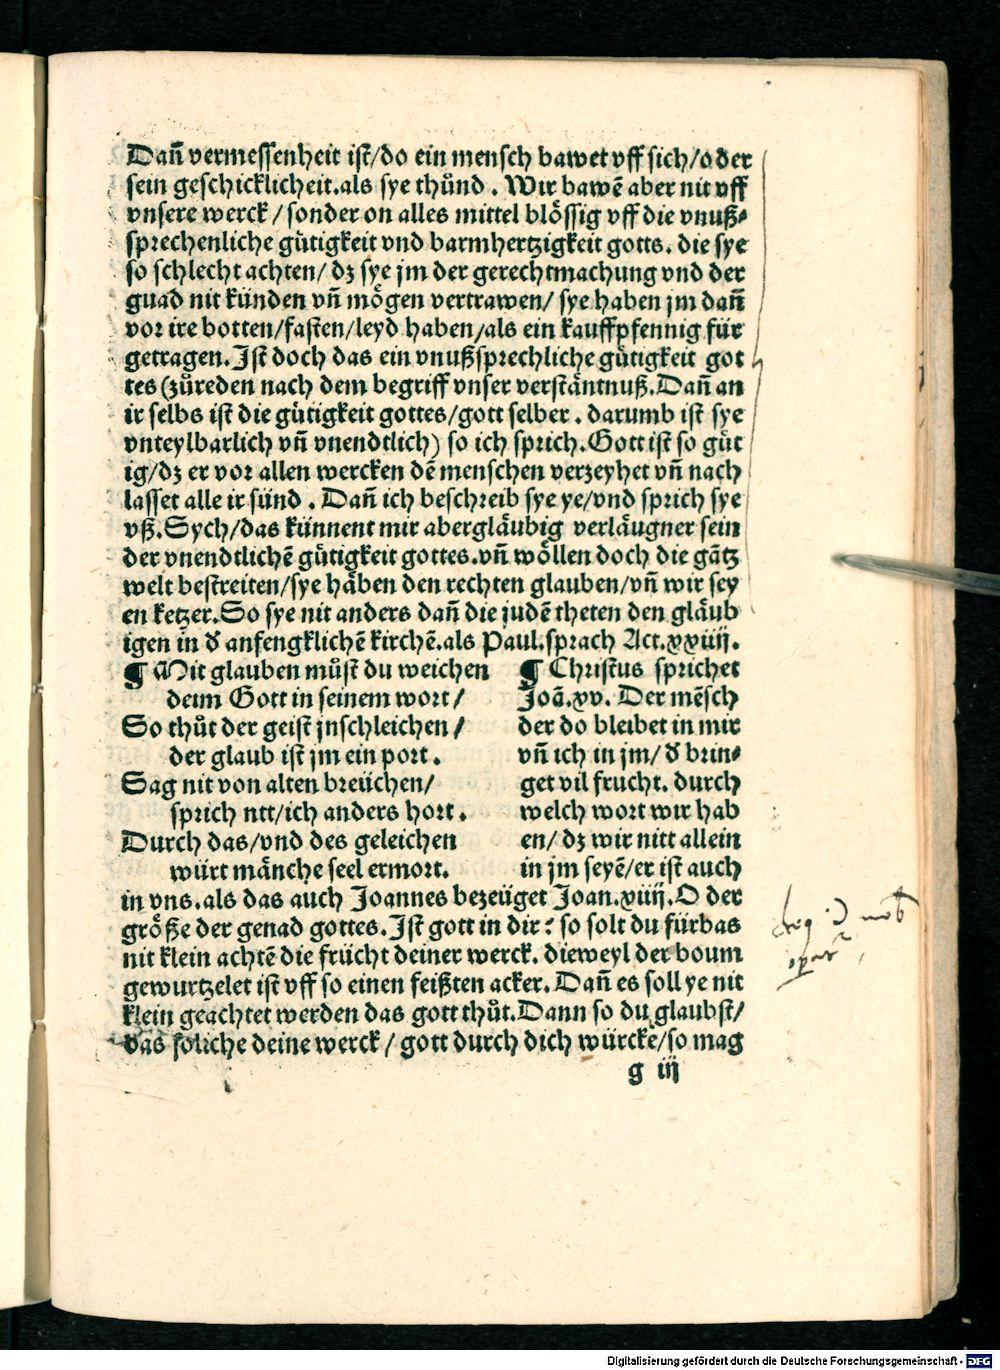 Dañ vermessenheit ist/do ein mensch bawet vff sich/oder
sein geschicklicheit.als sye thůnd. Wir bawē aber nit vff
vnsere werck/sonder on alles mittel blössig vff die vnuß⸗
sprechenliche gůtigkeit vnd barmhertzigkeit gotts. die sye
so schlecht achten/dz sye jm der gerechtmachung vnd der
guad nit künden vñ mögen vertrawen/sye haben jm dañ
vor ire botten/fasten/leyd haben/als ein kauffpfennig für
getragen. Ist doch das ein vnußsprechliche gůtigkeit got
tes (zůreden nach dem begriff vnser verstäntnuß. Dañ an
ir selbs ist die gůtigkeit gottes/gott selber. darumb ist sye
vnteylbarlich vñ vnendtlich) so ich sprich. Gott ist so gůt
ig/dz er vor allen wercken dē menschen verzeyhet vñ nach
lasset alle ir sünd. Dañ ich beschreib sye ye/vnd sprich sye
vß. Sych/das künnent mir abergläubig verläugner sein
der vnendtlichē gůtigkeit gottes.vñ wöllen doch die gātz
welt bestreiten/sye häben den rechten glauben/vñ wir sey
en ketzer. So sye nit anders dañ die judē theten den gläub
igen in d̕ anfengklichē kirchē.als Paul.sprach Act.xxiiij.
¶ Mit glauben můst du weichen
deim Gott in seinem wort/
So thůt der geist jnschleichen/
der glaub ist jm ein port.
Sag nit von alten breüchen/
sprich ntt/ich anders hort.
Durch das/vnd des geleichen
würt mänche seel ermort.
¶ Christus sprichet
Joā.xv. Der mēsch
der do bleibet in mir
vñ ich in jm/d̕ brin⸗
get vil frucht. durch
welch wort wir hab
en/dz wir nitt allein
in jm seyē/er ist auch
in vns.als das auch Joannes bezeüget Joan.xiiij. O der
größe der genad gottes. Ist gott in dir? so solt du fürbas
nit klein achtē die frücht deiner werck. dieweyl der boum
gewurtzelet ist vff so einen feißten acker. Dañ es soll ye nit
klein geachtet werden das gott thůt. Dann so du glaubst/
das soliche deine werck/gott durch dich würcke/so mag
g iij
Digitalisierung gefördert durch die Deutsche Forschungsgemeinschaft - DFG